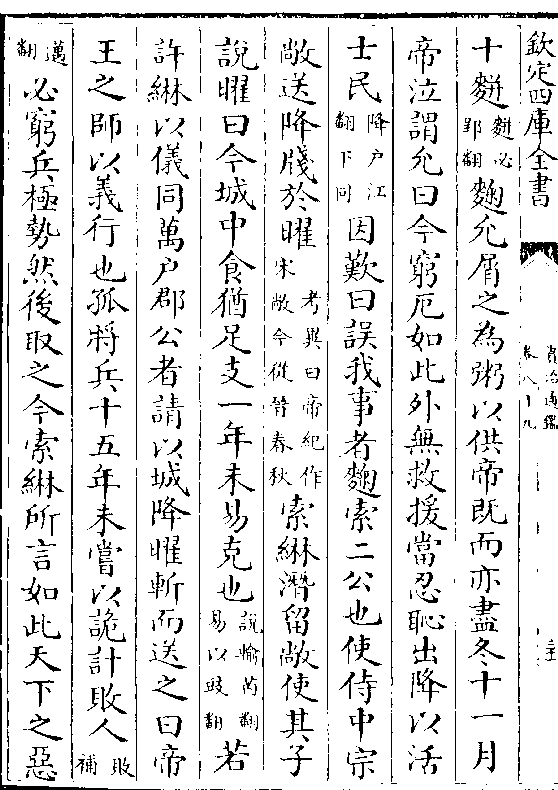 欽定四庫全書
資治通鑑
卷八十九
十麰麰必郢翻麴允屑之為粥以供帝既而亦盡冬十一月
帝泣謂允曰今窮厄如此外無救援當忍恥出降以活
士民降户江翻下同因歎曰誤我事者麴索二公也使侍中宗
敞送降牋於曜考異曰帝紀作宋敞今從晉春秋索綝潛留敞使其子
說曜曰今城中食猶足支一年未易克也說輸芮翻易以豉翻若
許綝以儀同萬户郡公者請以城降曜斬而送之曰帝
王之師以義行也孤將兵十五年未嘗以詭計敗人敗補
邁翻必窮兵極勢然後取之今索綝所言如此天下之惡